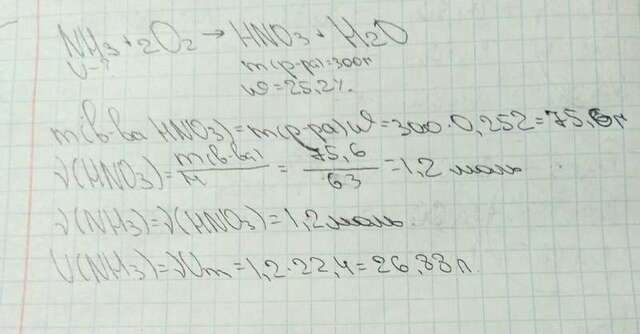 NH3 + 2O2 → HNO3 + H2O
V-?
m(р-ра)=300г
w=25,2%.
m(в-ва HNO3)=m(р-ра)·w=300·0,252=75,6г
ν(HNO3)=m(в-ва)/M=75,6/63=1,2 моль
ν(NH3)=ν(HNO3)=1,2 моль.
V(NH3)=νVm=1,2·22,4=26,88 л.